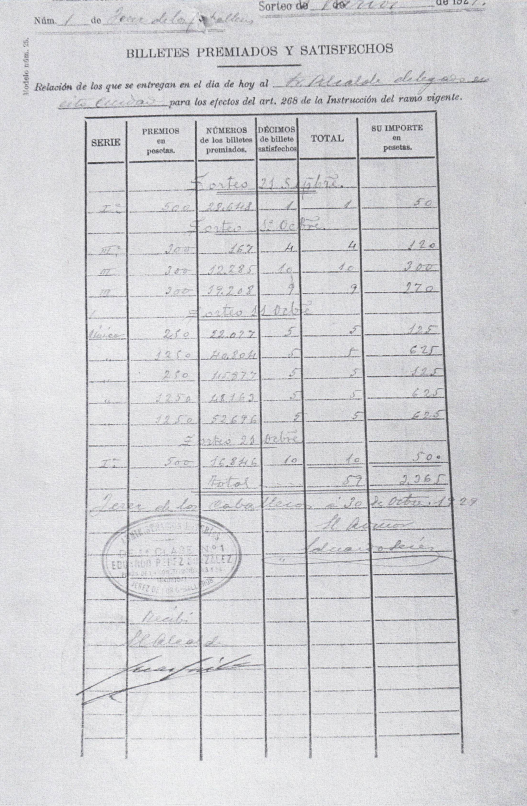 Sorteo de de 1929.
Núm. 1 de Jerez de los Caballeros
Modelo núm. 25.
BILLETES PREMIADOS Y SATISFECHOS
Relación de los que se entregan en el día de hoy al Sr. Alcalde delegado en
esta Ciudad para los efectos del art. 268 de la Instrucción del ramo vigente.
SERIE PREMIOS en pesetas. NÚMEROS de los billetes premiados. DÉCIMOS de billete satisfechos TOTAL SU IMPORTE en pesetas.
Sorteo 21 Sepbre.
Iª 500 1 1 50
Sorteo 1º Octubre.
IIIª 300 167 4 4 120
III 300 12.285 10 10 300
III 300 39.208 9 9 270
Sorteo 11 Octbre
Única 250 22.077 5 5 125
" 1250 40.204 5 5 625
" 250 45.877 5 5 125
" 1250 48.163 5 5 625
1250 52.696 5 5 625
Sorteo 21 Octbre
Iª 500 16.846 10 10 500
Total 59 3,365
Jerez de los Caballeros á 30 de Octre. 1929
El Admor
DE 1ª CLASE Nº 1
EDUARDO PEREZ GONZALEZ
JEREZ DE LOS CABALLEROS
Recibí
El Alcalde